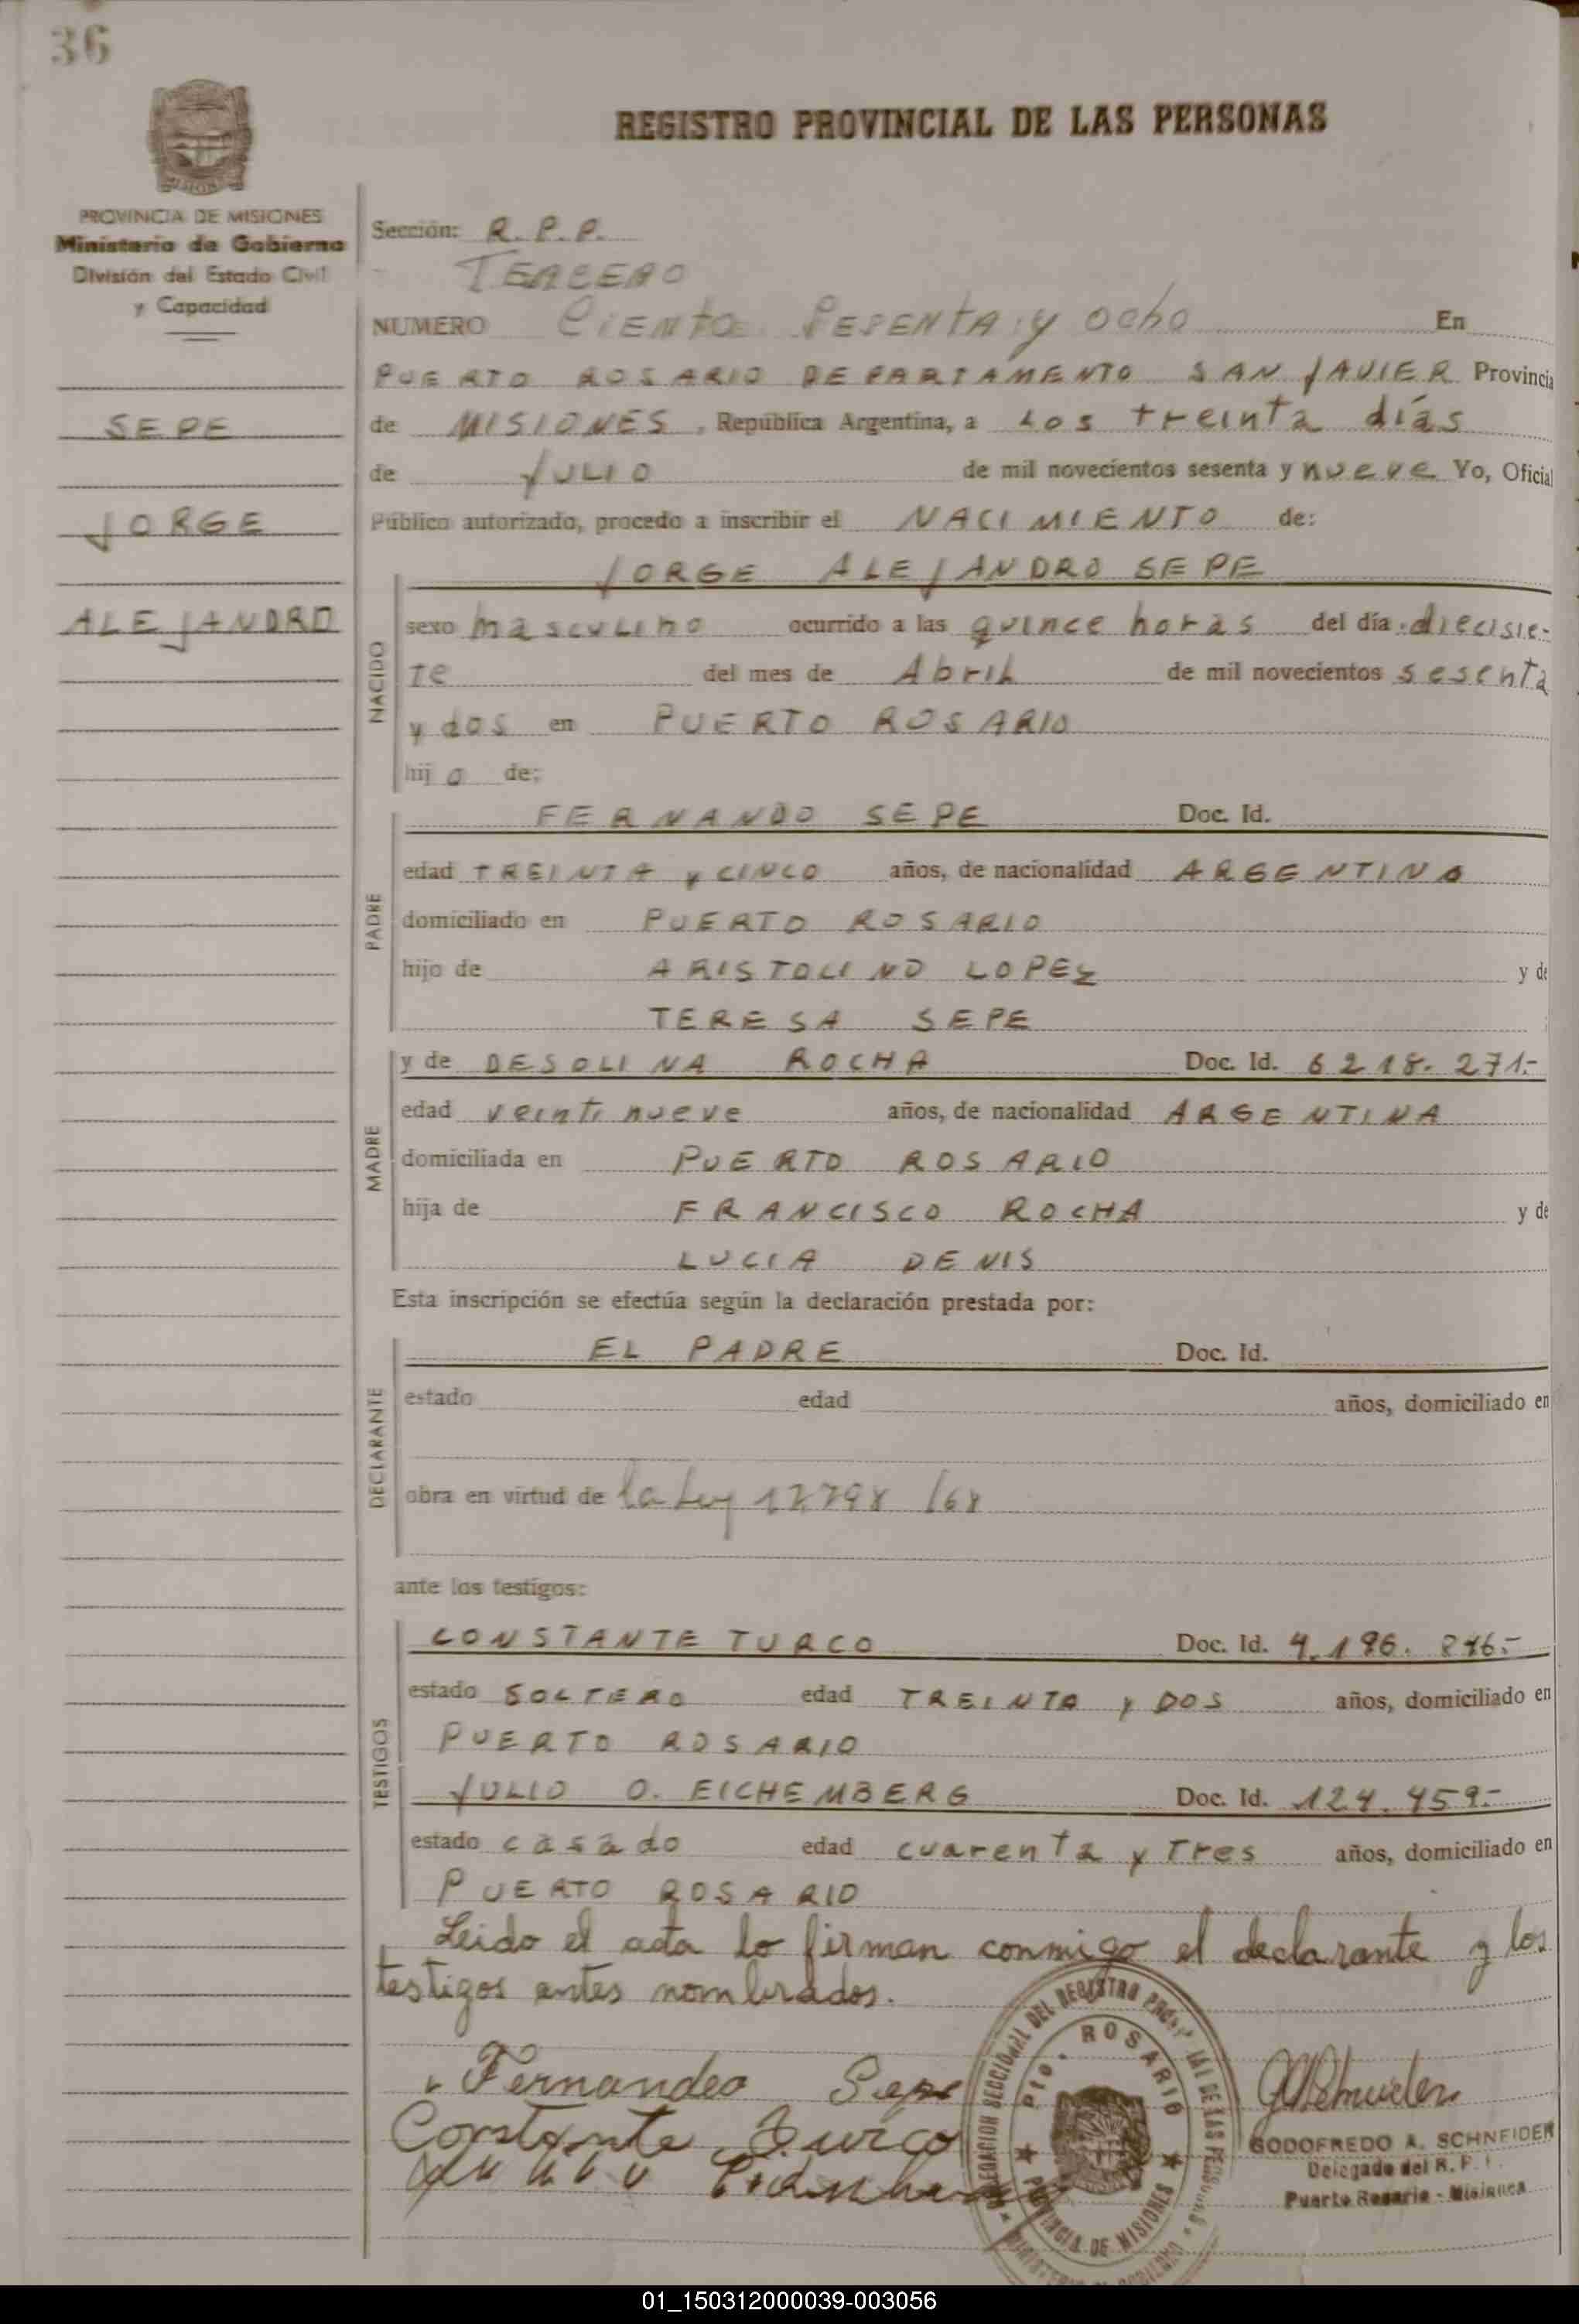 36
REGISTRO PROVINCIAL DE LAS PERSONAS
MISIONES
PROVINCIA DE MISIONES
Ministerio de Gobierno
División del Estado Civil
y Capacidad
SEPE
JORGE
ALEJANDRO
Sección: R.P.P.
TERCERO
NUMERO Ciento Sesenta y ocho En
PUERTO ROSARIO DEPARTAMENTO SAN JAVIER Provincia
de MISIONES, República Argentina, a los treinta días
de JULIO de mil novecientos sesenta y nueve Yo, Oficial
Público autorizado, procedo a inscribir el NACIMIENTO de:
NACIDO
JORGE ALEJANDRO SEPE
sexo masculino ocurrido a las quince horas del día diecisie-
te del mes de Abril de mil novecientos sesenta
y dos en PUERTO ROSARIO
hijo de:
PADRE
FERNANDO SEPE Doc. Id.
edad TREINTA y CINCO años, de nacionalidad ARGENTINA
domiciliado en PUERTO ROSARIO
hijo de ARISTOLINO LOPEZ y de
TERESA SEPE
MADRE
y de DESOLINA ROCHA Doc. Id. 6218.271.-
edad veinti nueve años, de nacionalidad ARGENTINA
domiciliada en PUERTO ROSARIO
hija de FRANCISCO ROCHA y de
LUCIA DENIS
Esta inscripción se efectúa según la declaración prestada por:
DECLARANTE
EL PADRE Doc. Id.
estado edad años, domiciliado en
obra en virtud de la Ley /68
ante los testigos:
TESTIGOS
CONSTANTE TURCO Doc. Id.
estado SOLTERO edad TREINTA y DOS años, domiciliado en
PUERTO ROSARIO
JULIO O. EICHEMBERG Doc. Id. 124.459.-
estado casado edad cuarenta y Tres años, domiciliado en
PUERTO ROSARIO
Leido el acta lo firman conmigo el declarante y los
testigos antes nombrados.
Fernandeo Sepe
Constante Turco
DELEGACION SECCIONAL DEL REGISTRO PROVINCIAL DE LAS PERSONAS
Pto. ROSARIO
PROVINCIA DE MISIONES
GODOFREDO A. SCHNEIDER
Delegado del R. P. P.
Puerto Rosario - Misiones
01_150312000039-003056